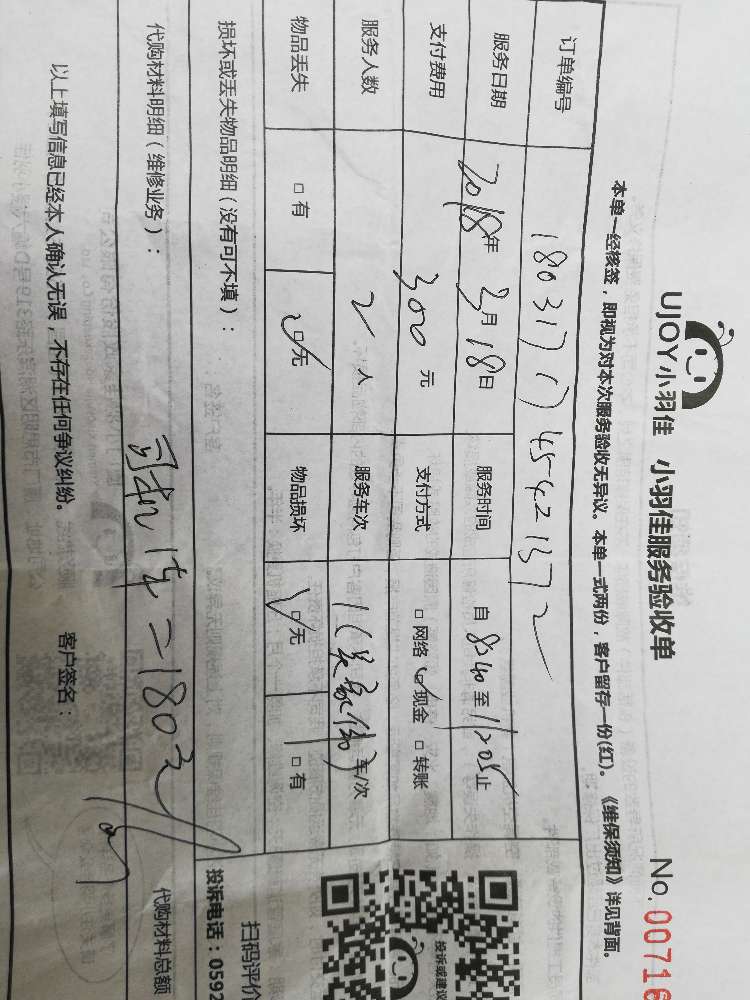 UJOY小羽佳 小羽佳服务验收单 No. 00716
本单一经核签，即视为对本次服务验收无异议。本单一式两份，客户留存一份(红)。《维保须知》详见背面。
订单编号
服务日期 2018年 3月 18日 服务时间 自 8:40 至 12:05止
支付费用 300 元 支付方式 □ 网络 □ 现金 □ 转账
服务人数 2 人 服务车次 1 车/次
物品丢失 □ 有 □ 无 物品损坏 □ 无 □ 有
损坏或丢失物品明细（没有可不填）：
代购材料明细（维修业务）： 代购材料总额
=180元
以上填写信息已经本人确认无误，不存在任何争议纠纷。 客户签名：
投诉或建议
扫码评价
投诉电话：0592